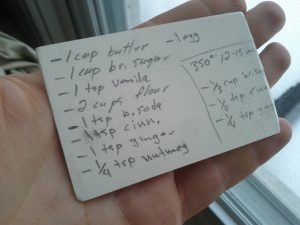 - 1 cup butter
- 1 egg
- 1 cup br. sugar
- 1 tsp vanila
- 2 cups flour
- 1 tsp b. soda
- 1 tsp cinn.
- 1 tsp ginger
- 1/4 tsp nutmeg
350° 12-15
- 1/3 cup br. su
- 1/2 tsp cinn
- 1/4 tsp g